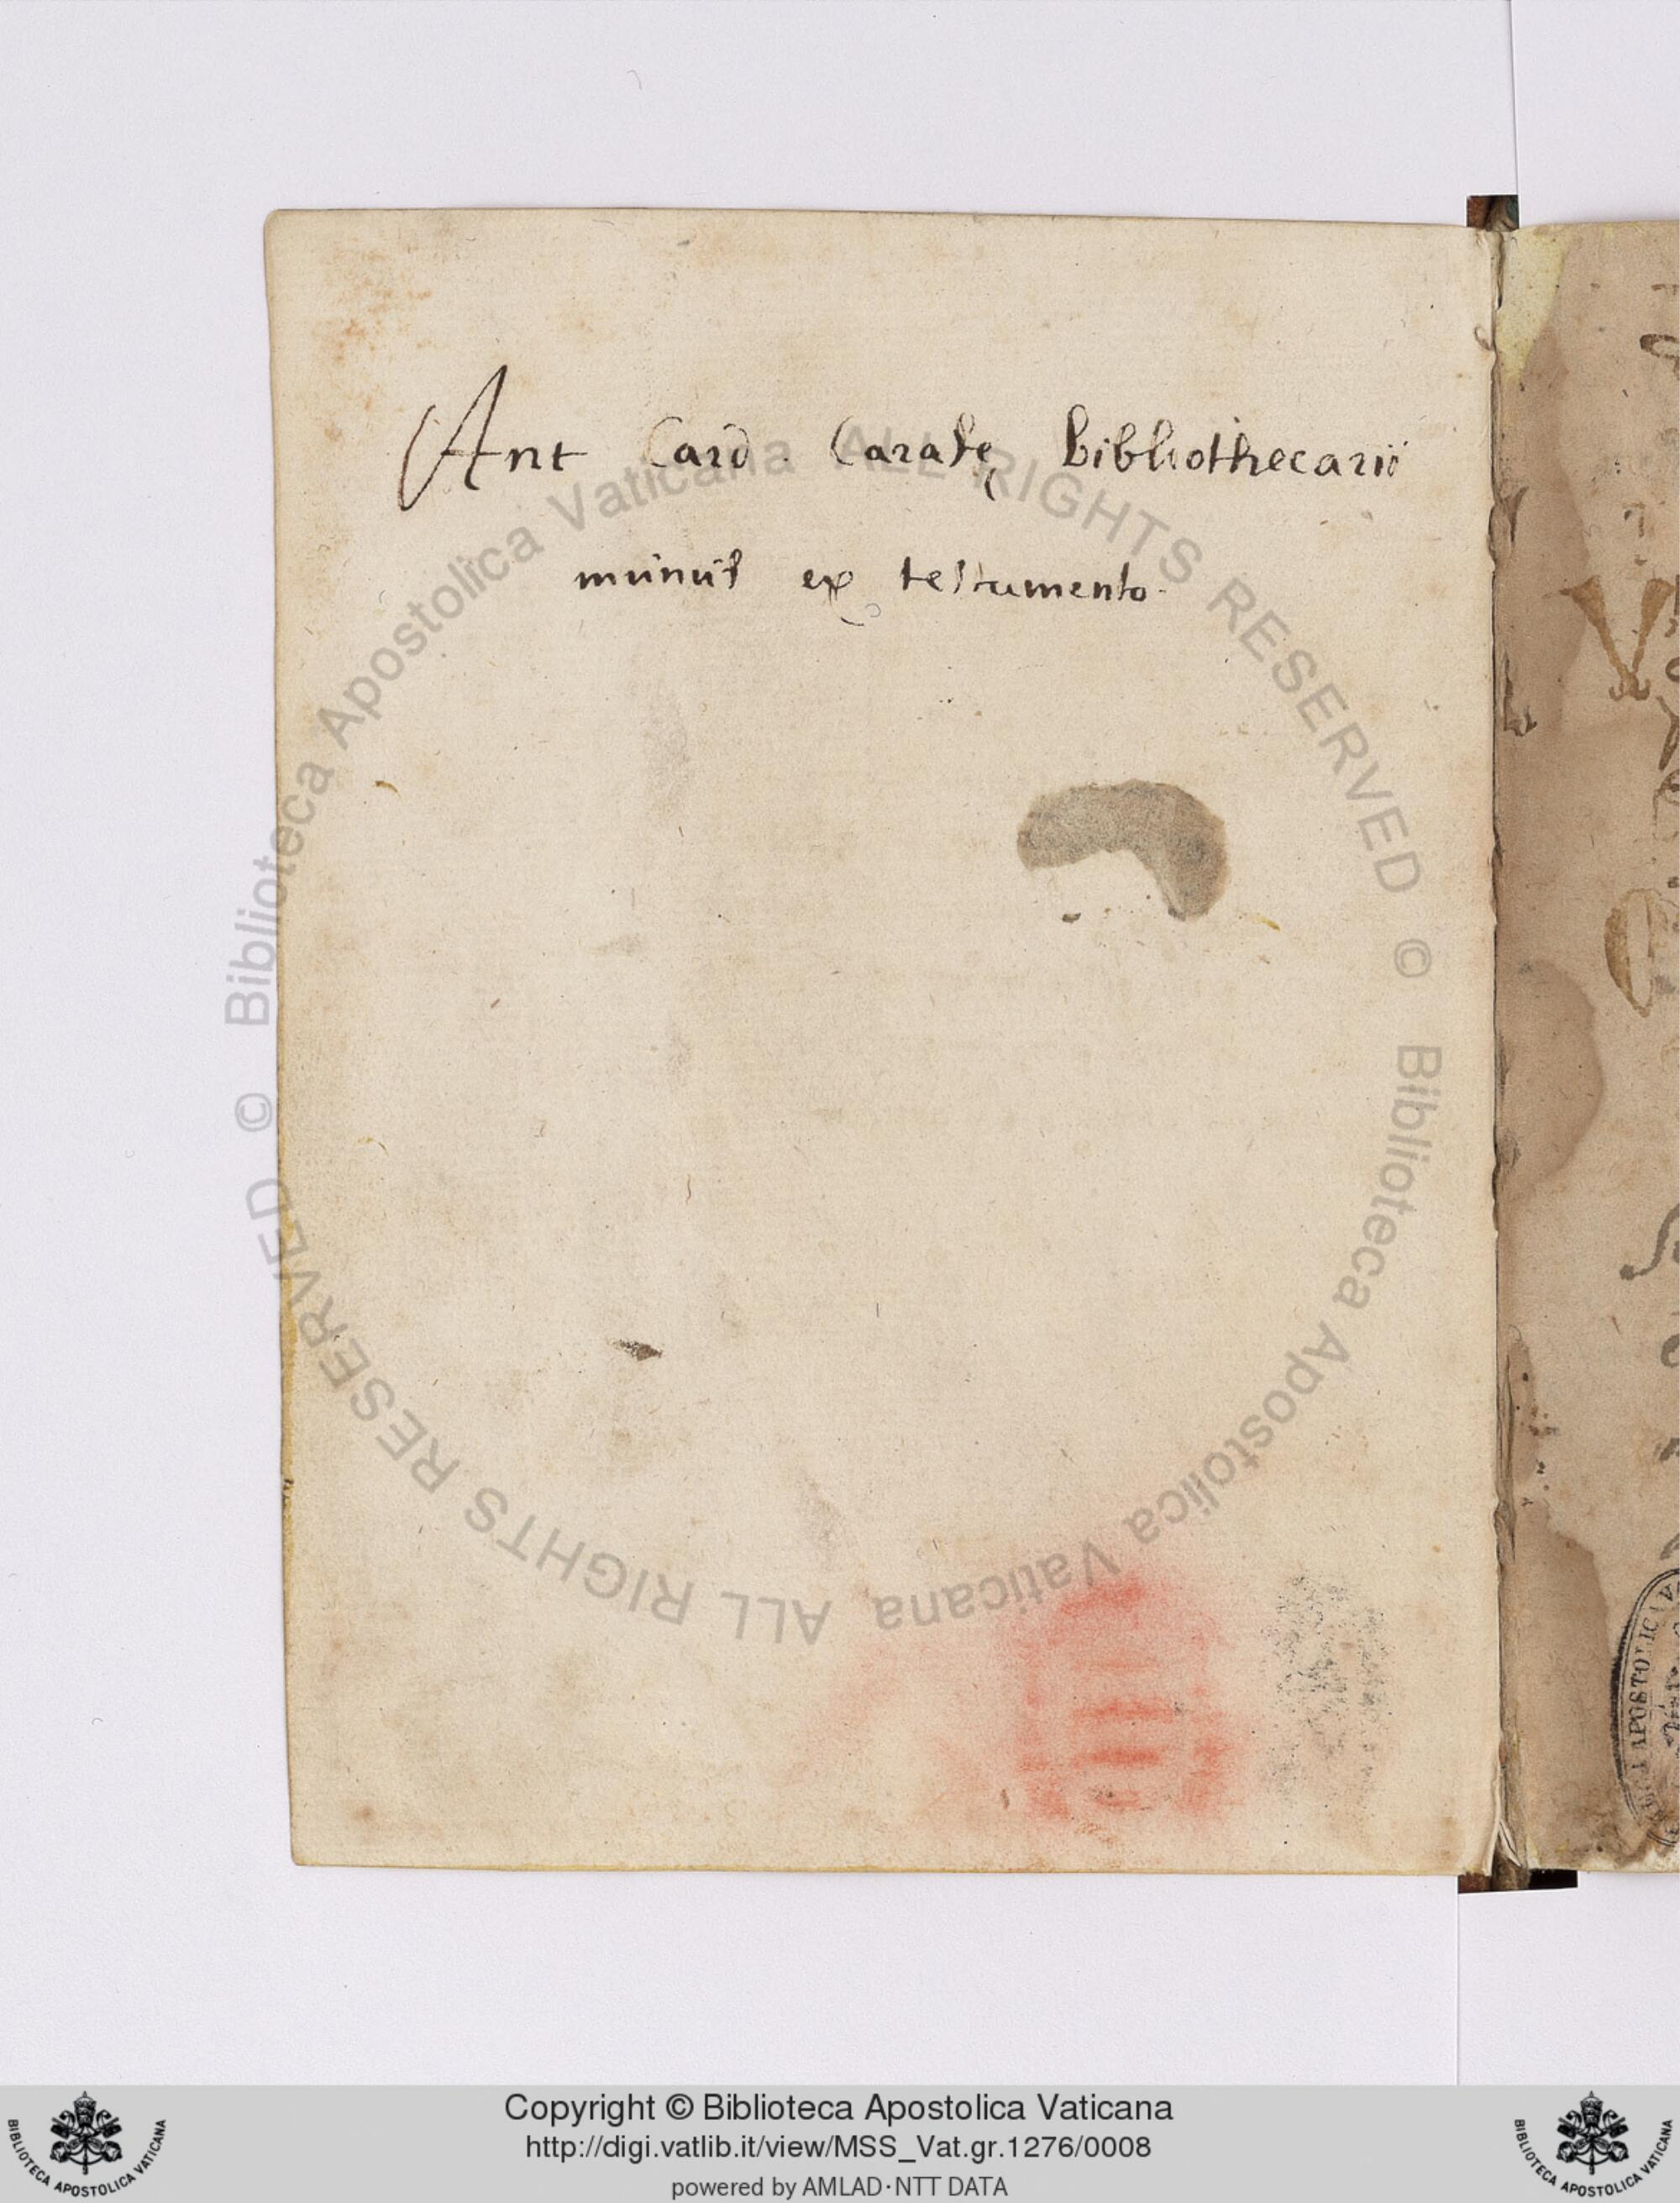 Ant Card. Carafę bibliothecarii
munus ex testamento.
© Biblioteca Apostolica Vaticana ALL RIGHTS RESERVED © Biblioteca Apostolica Vaticana ALL RIGHTS RESERVED
V
APOSTOLIC
Copyright © Biblioteca Apostolica Vaticana
http://digi.vatlib.it/view/MSS_Vat.gr.1276/0008
powered by AMLAD·NTT DATA
BIBLIOTECA APOSTOLICA VATICANA
BIBLIOTECA APOSTOLICA VATICANA